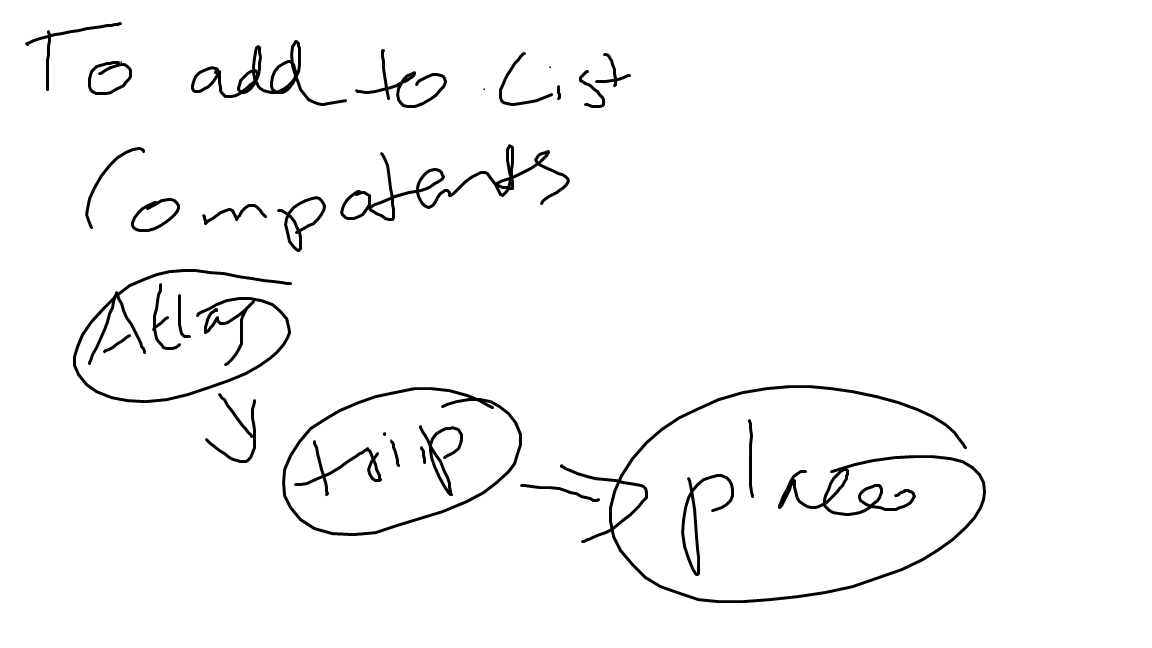 To add to List
Compotents
Atlas
trip
places